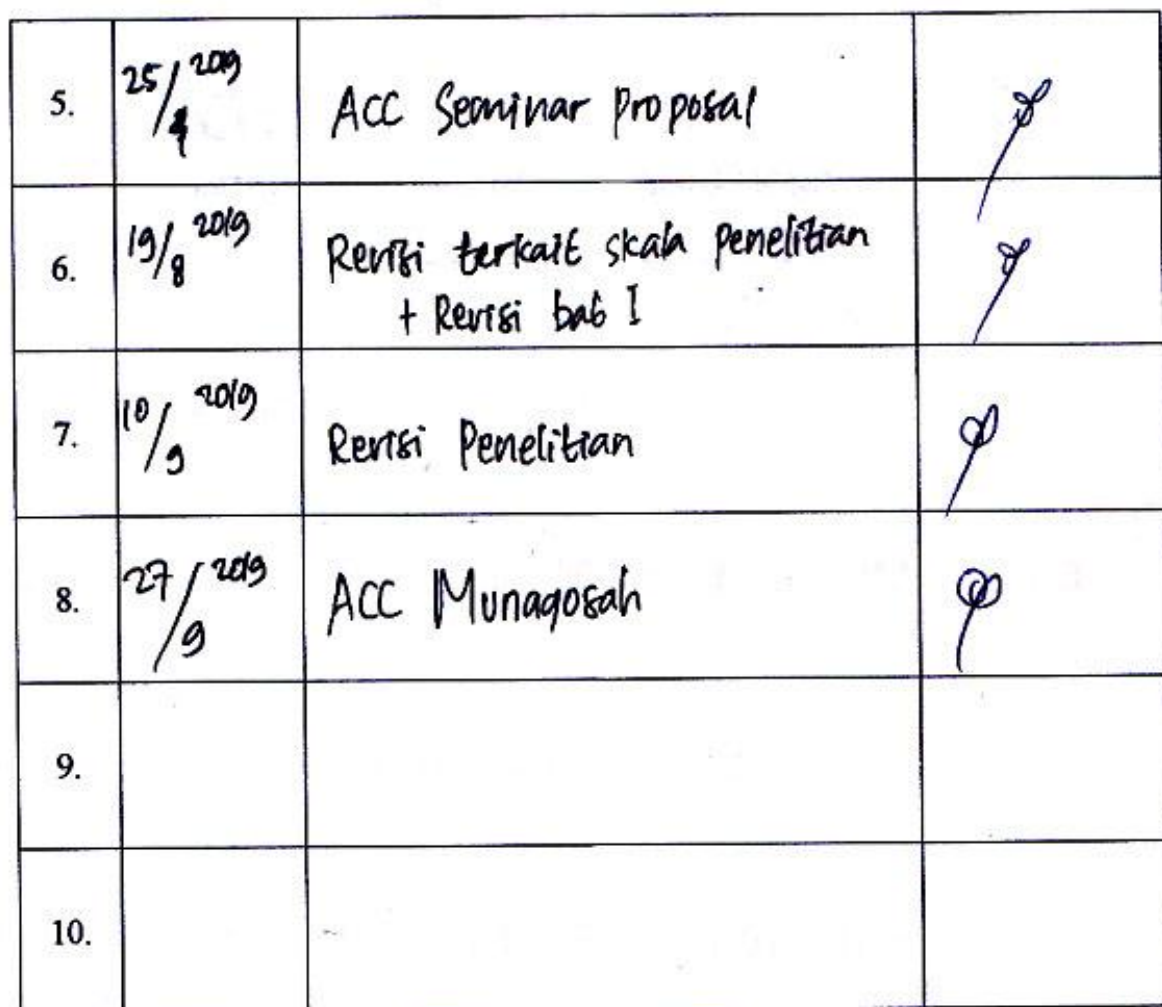 5. 25/4 2019 ACC Seminar Proposal
6. 19/8 2019 Revisi terkait skala penelitian
+ Revisi bab I
7. 10/9 2019 Revisi Penelitian
8. 27/9 2019 ACC Munaqosah
9.
10.